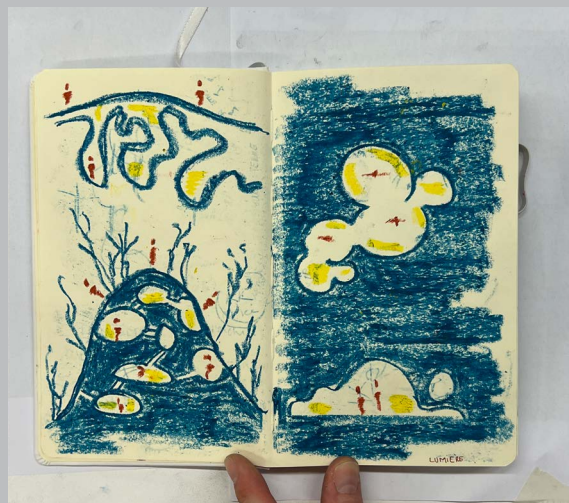 LUMIÈRE